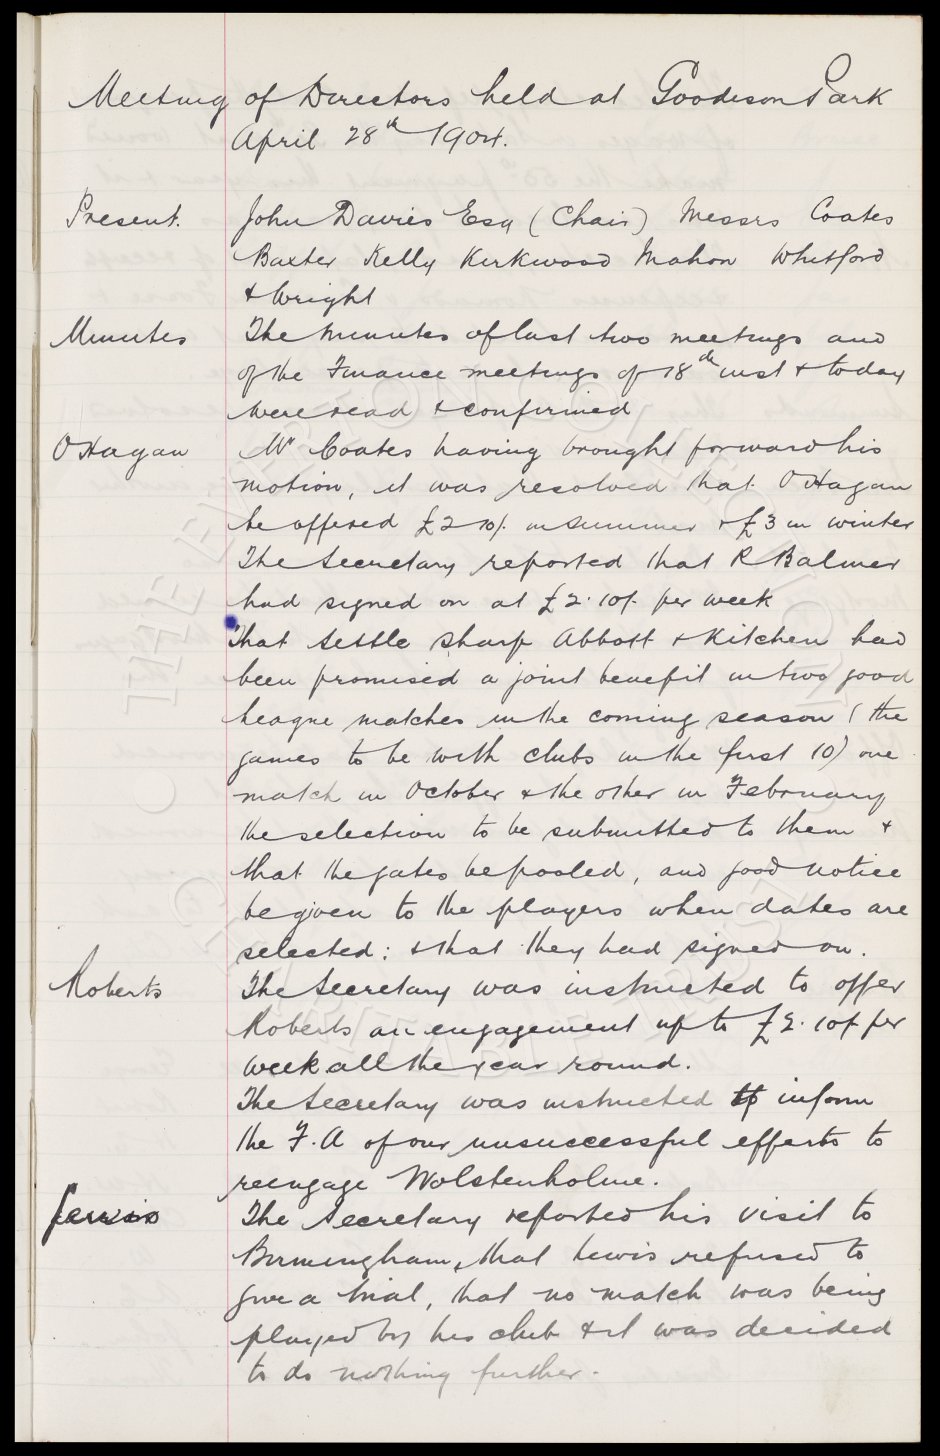 Meeting of Directors held at Goodison Park
April 28th 1904.
Present. John Davies Esq (Chair) Messrs Coates
Baxter Kelly Kirkwood Mahon Whitford
& Wright
Minutes The minutes of last two meetings and
of the Finance meetings of 18th inst & today
were read & confirmed
O'Hagan Mr Coates having brought forward his
motion, it was resolved that O'Hagan
be offered £2 10/- in summer & £3 in winter
The Secretary reported that R Balmer
had signed on at £2.10/- per week
That Settle Sharp Abbott & Kitchen had
been promised a joint benefit in two good
League matches in the coming season (the
games to be with clubs in the first 10) one
match in October & the other in February
the selection to be submitted to them &
that the gates be pooled, and good notice
be given to the players when dates are
selected: & that they had signed on.
Roberts The Secretary was instructed to offer
Roberts an engagement up to £2.10/- per
week all the year round.
The Secretary was instructed to inform
the F.A of our unsuccessful efforts to
reengage Wolstenholme.
The Secretary reported his visit to
Birmingham, that Lewis refused to
give a trial, that no match was being
played by his club & it was decided
to do nothing further.